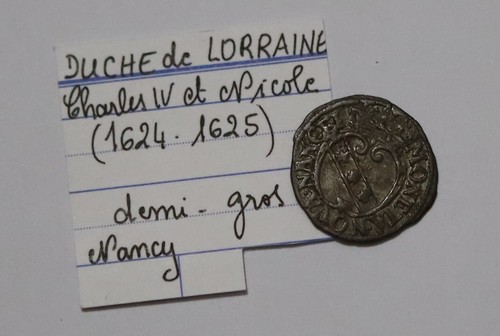 DUCHE de LORRAINE
Charles IV et Nicole
(1624. 1625)
demi-gros
Nancy
MONETA NOVA NANCE